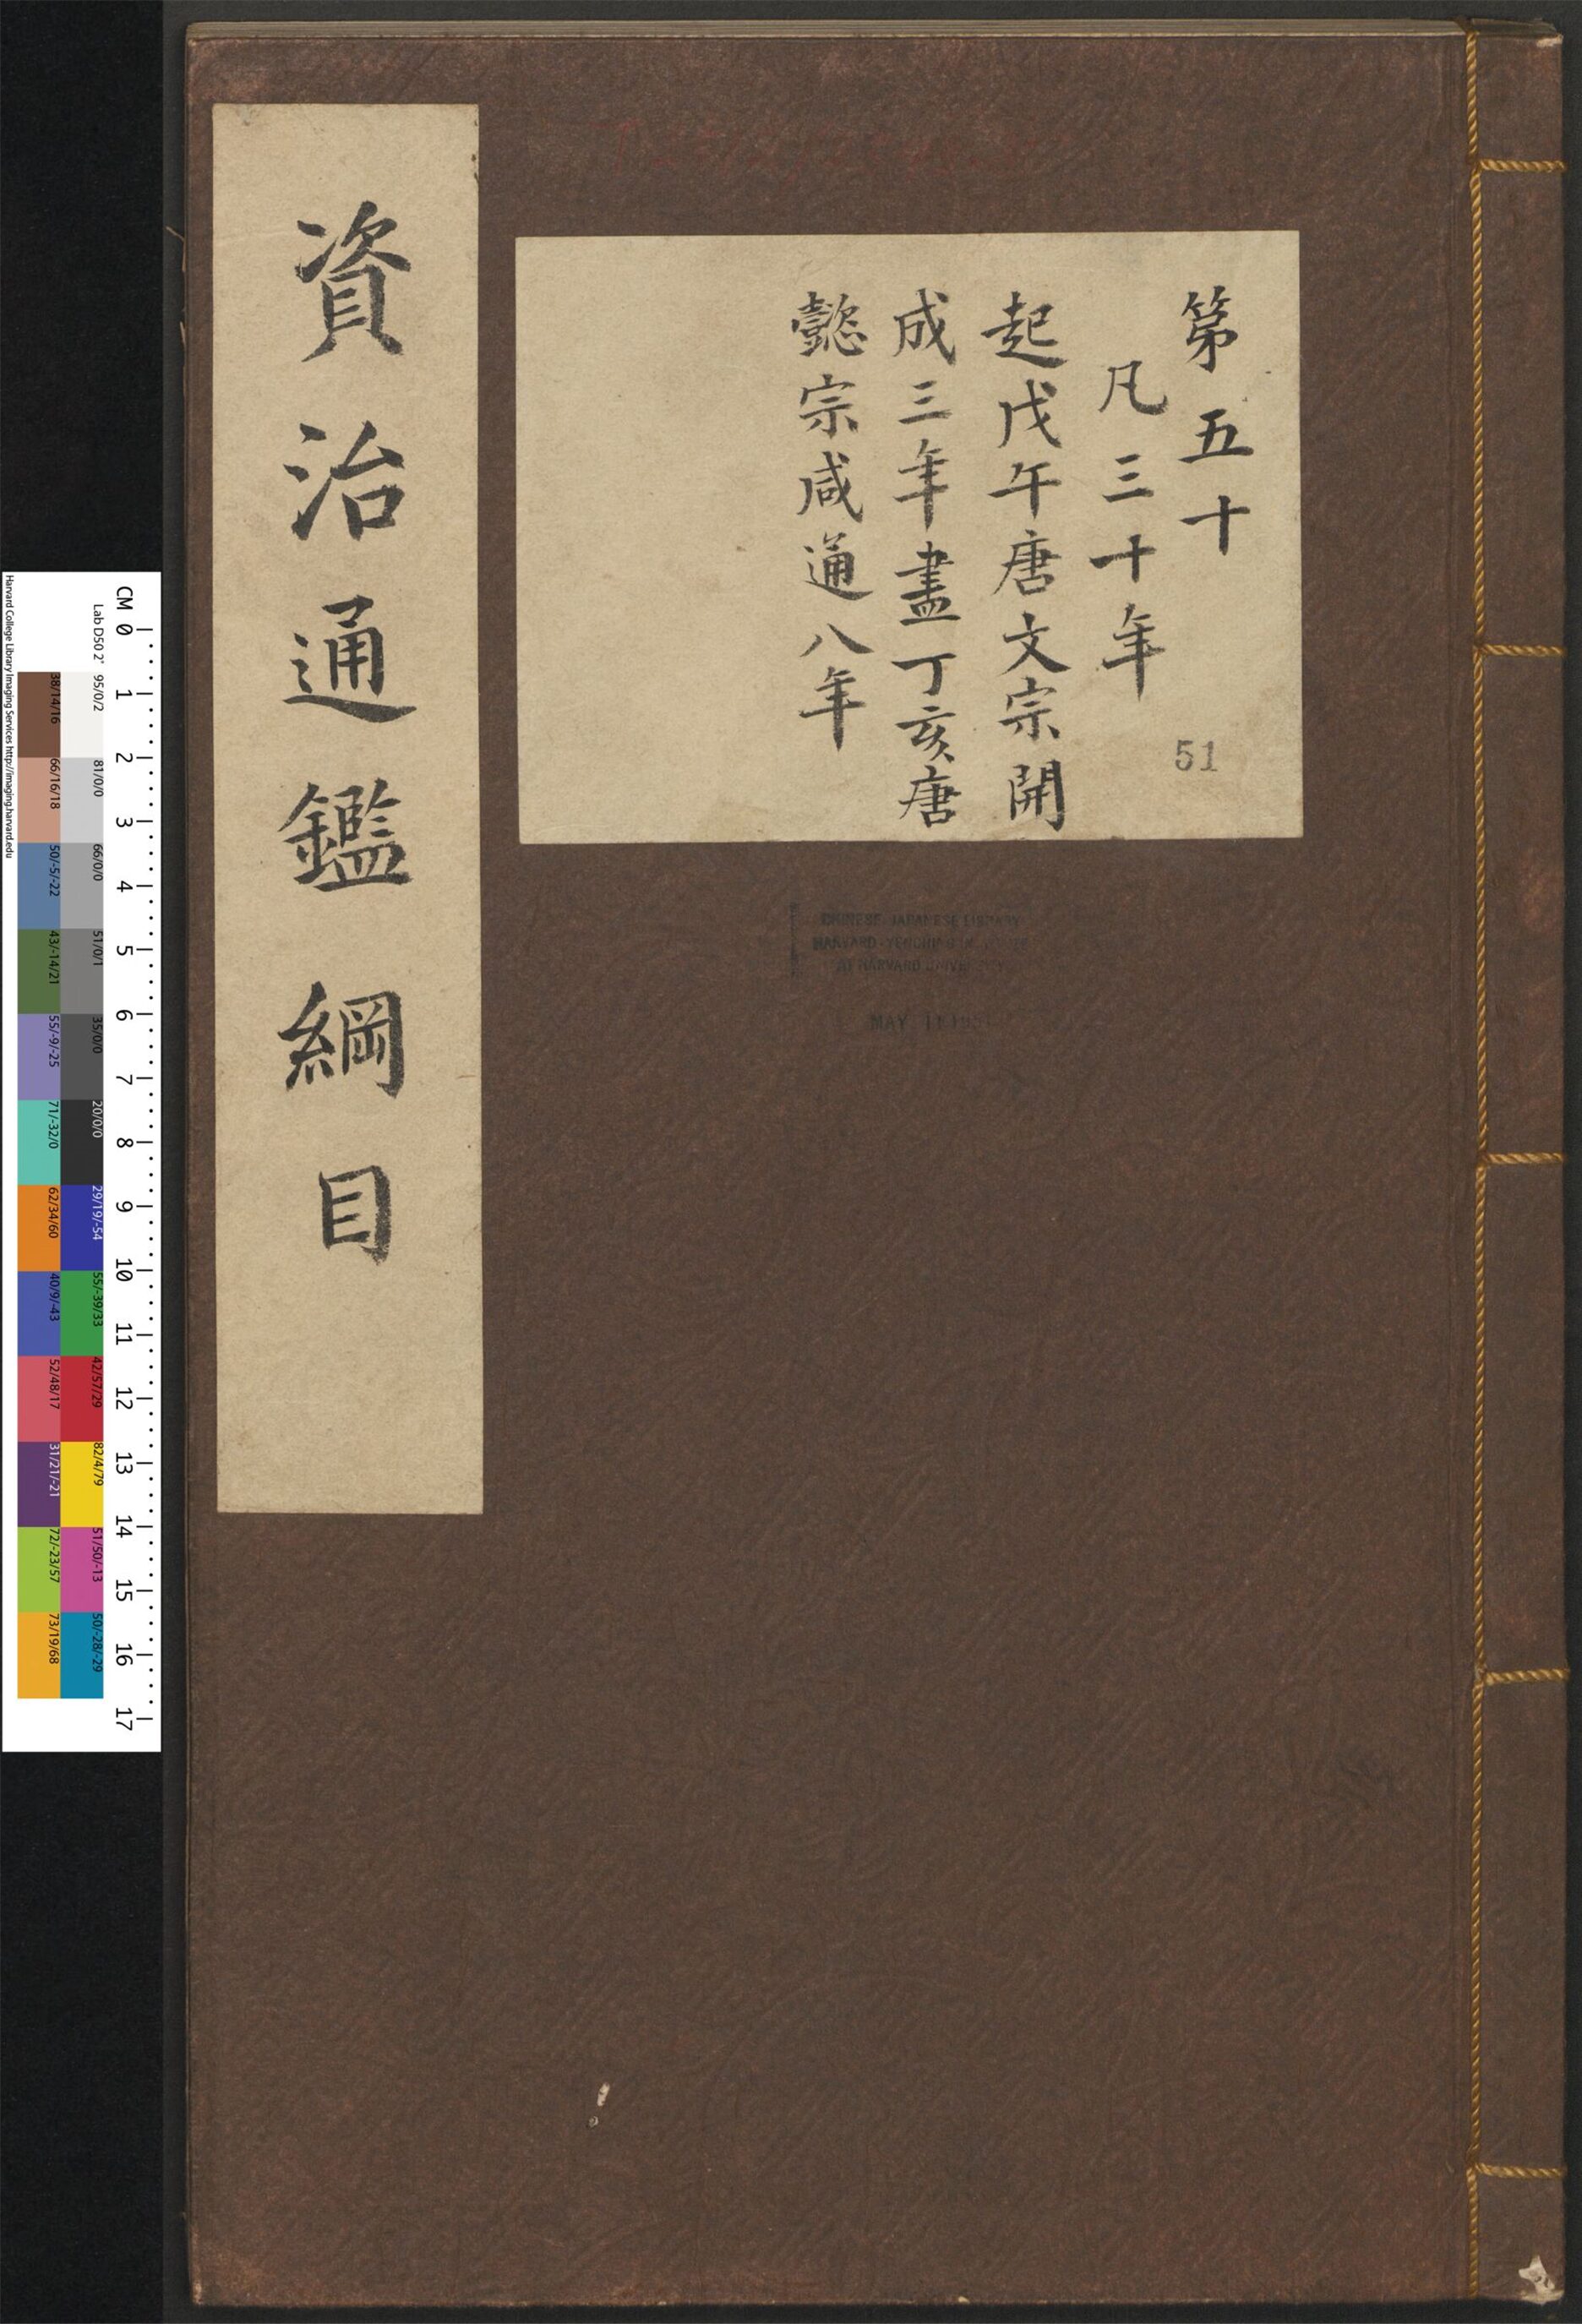 第五十
凡三十年
起戊午唐文宗開
成三年盡丁亥唐
懿宗咸通八年
51
資治通鑑綱目
CHINESE-JAPANESE LIBRARY
HARVARD-YENCHING
AT HARVARD
MAY 1 1
CM 0 1 2 3 4 5 6 7 8 9 10 11 12 13 14 15 16 17
Lab D50 2° 95/0/2 81/0/0 66/0/0 51/0/1 35/0/0 20/0/0 29/19/-54 55/-39/33 42/57/29 82/4/79 51/50/-13 50/-28/-29
38/14/16 66/16/18 50/-5/-22 43/-14/21 55/-9/-25 71/-32/0 62/34/60 40/9/-43 52/48/17 31/21/-21 72/-23/57 73/19/68
Harvard College Library Imaging Services http://imaging.harvard.edu